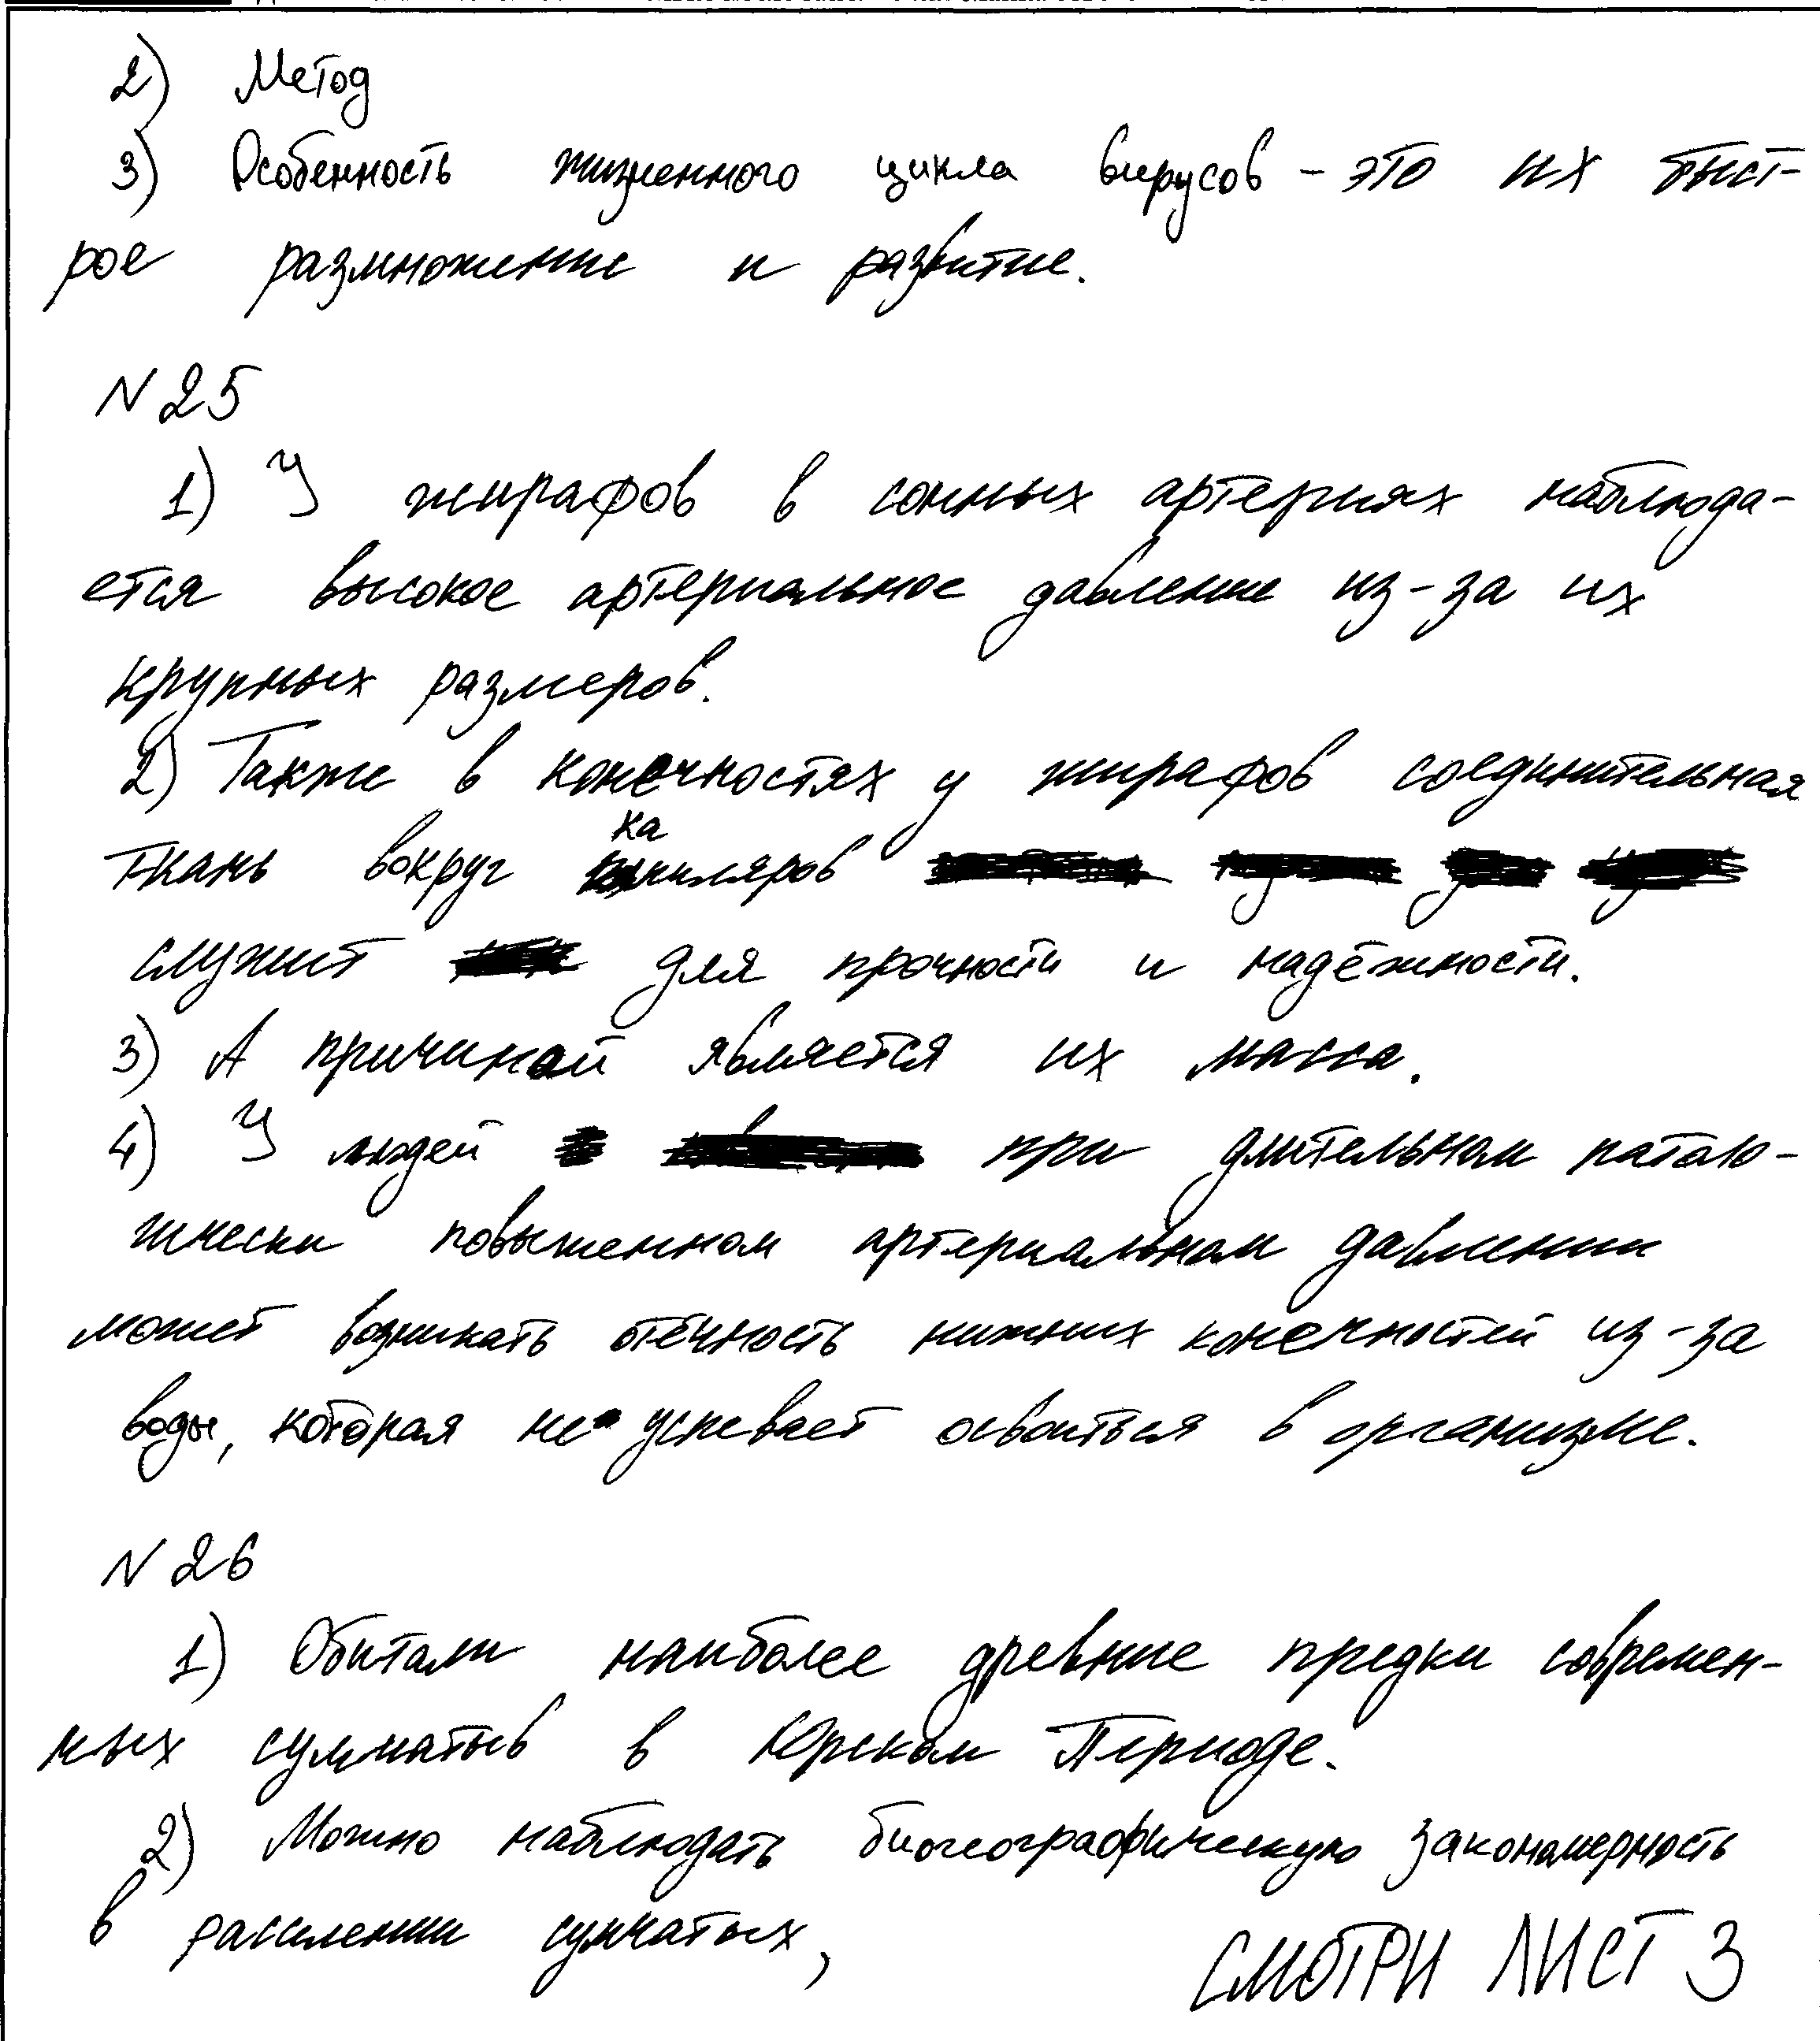 2) Метод
3) Особенность жизненного цикла вирусов - это их быст-
рое размножение и развитие.
N 25
1) У жирафов в сонных артериях наблюда-
ется высокое артериальное давление из-за их
крупных размеров.
2) Также в конечностях у жирафов соединительная
ткань вокруг капиляров
служит для прочности и надёжности.
3) А причиной является их масса.
4) У людей при длительном патало-
гически повышенном артериальном давлении
может возникать отёчность нижних конечностей из-за
воды, которая не успевает освоиться в организме.
N 26
1) Обитали наиболее древние предки современ-
ных сумчатыв в Юрском Периоде.
2) Можно наблюдать биогеографическую закономерность
в расселении сумчатых,
СМОТРИ ЛИСТ 3